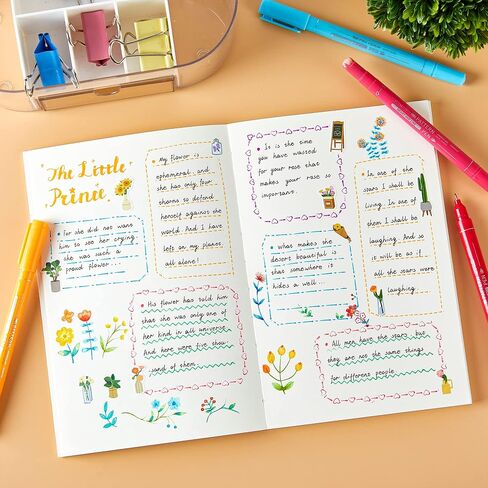 The Little
Prince.
My flower is
ephemeral and
she has only four
thorns to defend
herself against the
world. And I have
left on my planet,
all alone!
For she did not want
him to see her crying.
she was such a
proud flower...
His flower has told him
that she was only one of
her kind in all universe.
And here were five thou-
sand of them.
It is the time
you have wasted
for your rose that
makes your rose so
important.
In one of the
stars I shall be
living. In one of
them I shall be
laughing. And so
it will be as if
all the stars were
laughing.
What makes the
desert beautiful is
that somewhere is
hides a well...
All men have the stars, but
they are not the same things
for different people.